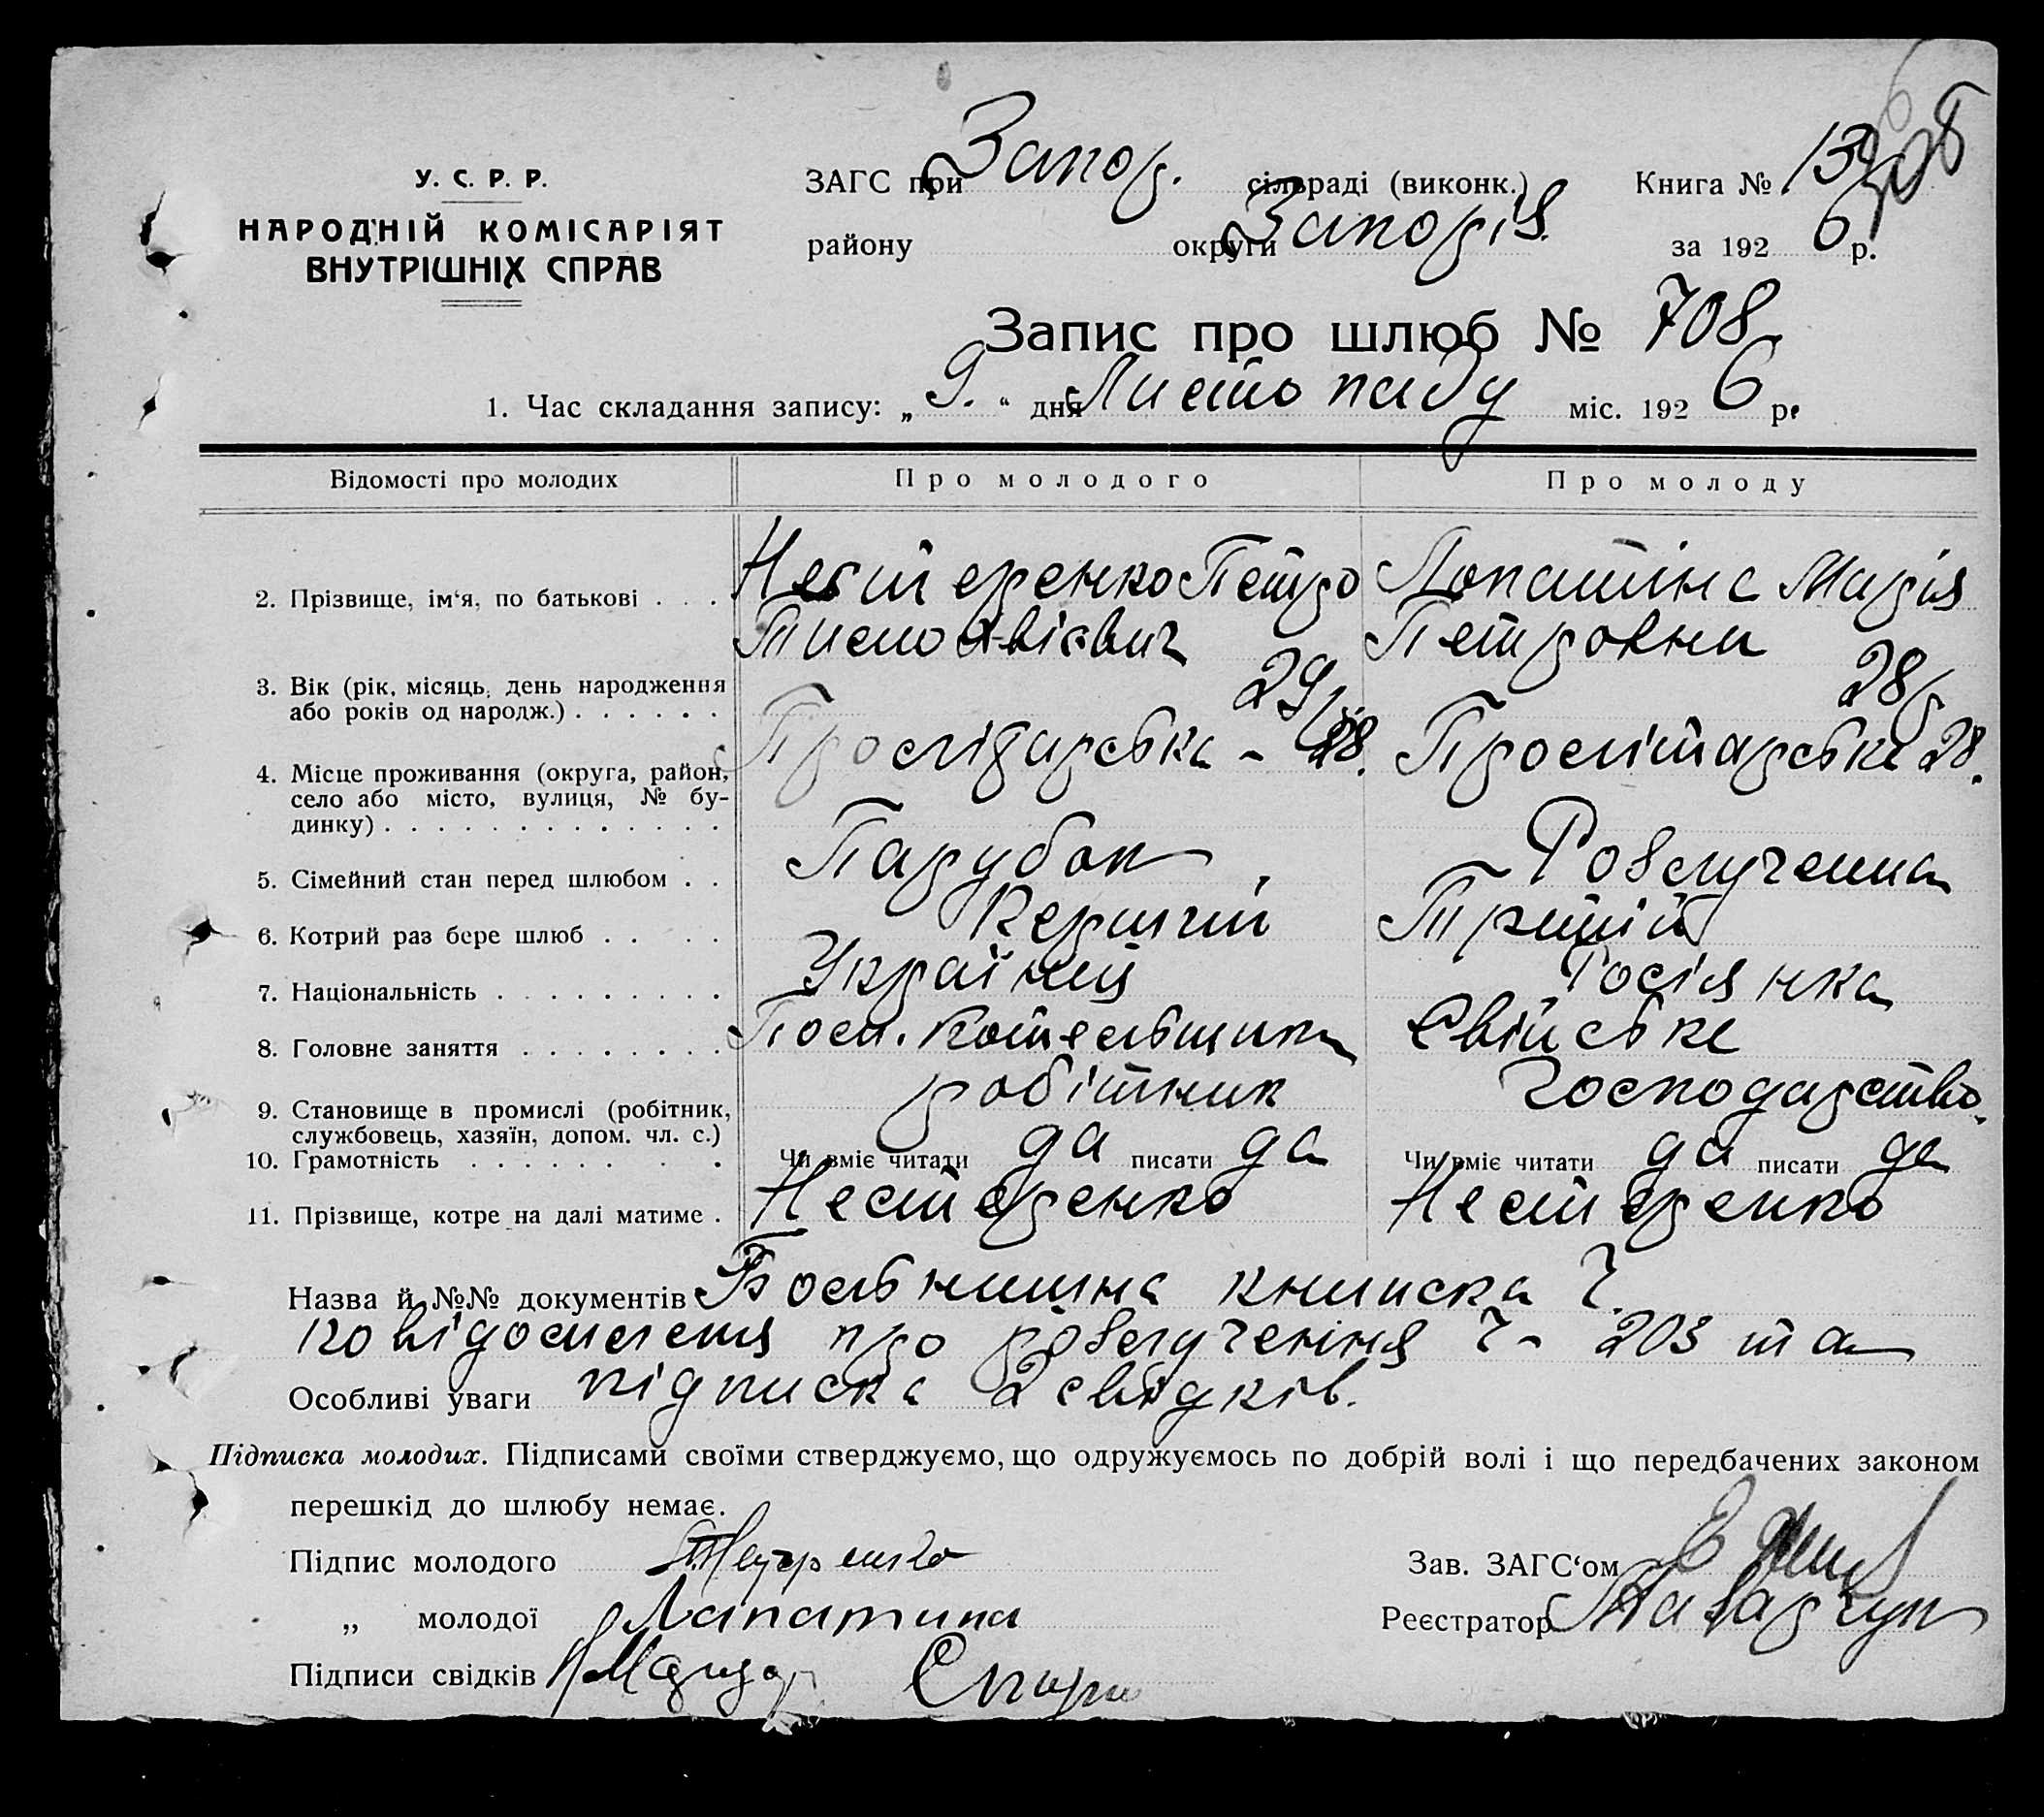 У. С. Р. Р.
НАРОДНІЙ КОМІСАРІЯТ
ВНУТРІШНІХ СПРАВ
ЗАГС при Запор. сільраді (виконк.) Книга № 13
району округи Запоріз. за 192 6 р.
Запис про шлюб № 708
1. Час складання запису: „ 9. “ дня Листопаду міс. 192 6 р.
Відомості про молодих Про молодого Про молоду
2. Прізвище, ім‘я, по батькові . . . Нестеренко Петро Лопатіна Марія
Петровна
3. Вік (рік, місяць, день народження 29 28
або років од народж.) . . . . . .
Пролітарська - 28. Пролітарська 28.
4. Місце проживання (округа, район,
село або місто, вулиця, № бу-
динку) . . . . . . . . . . . . .
5. Сімейний стан перед шлюбом . . Парубок Розлученна
6. Котрий раз бере шлюб . . . . Перший Третій
7. Національність . . . . . . . . . Українец Росіянка
8. Головне заняття . . . . . . . . Котельщика Свійське
робітник Господарство.
9. Становище в промислі (робітник,
службовець, хазяїн, допом. чл. с.)
10. Грамотність . . . . . . . . Чи вміє читати да писати да Чи вміє читати да писати да
11. Прізвище, котре на далі матиме . Нестеренко Нестеренко
Назва й №№ документів Больнишна книжска Ч.
про розлучення Ч- 203 та
Особливі уваги підписка 2 свідків.
Підписка молодих. Підписами своїми стверджуємо, що одружуємось по добрій волі і що передбачених законом
перешкід до шлюбу немає.
Підпис молодого Зав. ЗАГС‘ом
„ молодої Лапатина Реєстратор
Підписи свідків